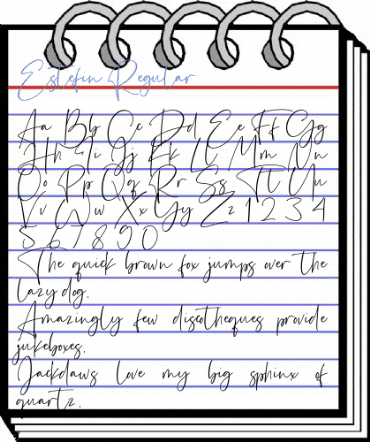 Estefin Regular
Aa Bb Cc Dd Ee Ff Gg
Hh Ii Jj Kk Ll Mm Nn
Oo Pp Qq Rr Ss Tt Uu
Vv Ww Xx Yy Zz 1 2 3 4
5 6 7 8 9 0
The quick brown fox jumps over the
lazy dog.
Amazingly few discotheques provide
jukeboxes.
Jackdaws love my big sphinx of
quartz.